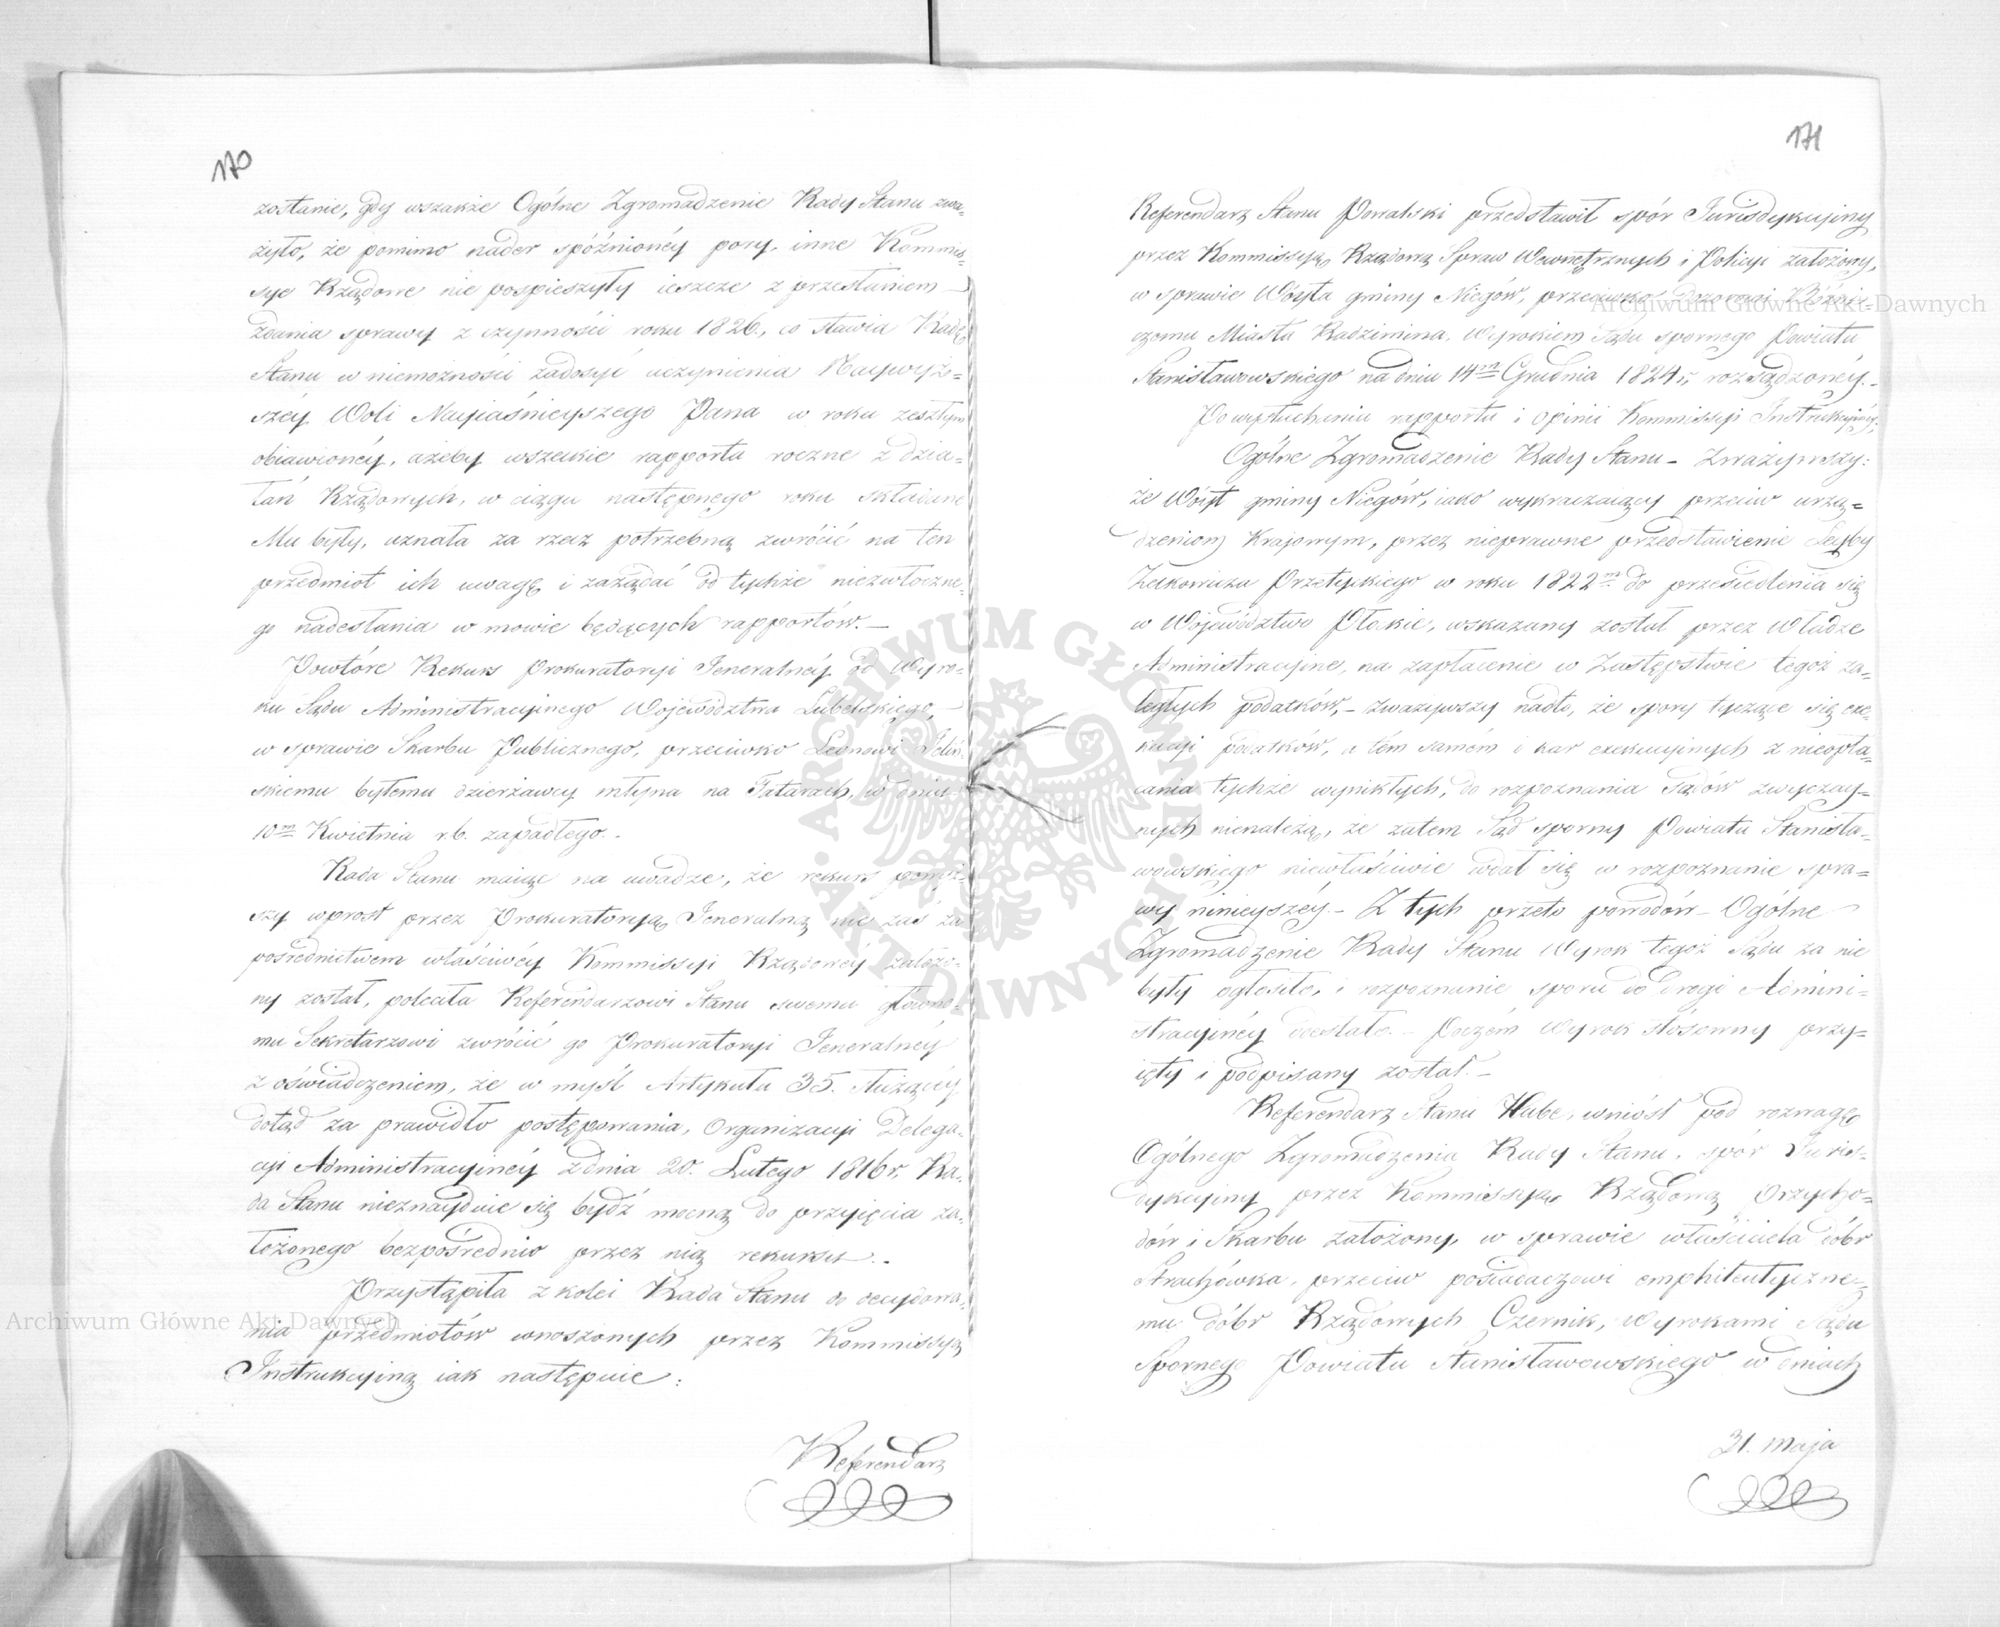 170
zostanie, gdy wszakże Ogólne Zgromadzenie Rady Stanu zwa-
żyło, że pomimo nader spóźnionéy pory, inne Kommis-
sye Rządowe nie pospieszyły ieszcze z przesłaniem
zdania sprawy z czynności roku 1826, co stawia Radę
Stanu w niemożności zadosyć uczynienia Naywyż-
széy Woli Nayiaśnieyszego Pana w roku zeszłym
obiawionéy, ażeby wszelkie rapporta roczne z dzia-
łań Rządowych, w ciągu następnego roku składane
Mu były, uznała za rzecz potrzebną zwrócić na ten
przedmiot ich uwagę i zażądać od tychże niezwłoczne-
go nadesłania w mowie będących rapportów.—
Powtóre Rekurs Prokuratoryi Jeneralnéy od Wyro-
ku Sądu Administracyinego Województwa Lubelskiego,
w sprawie Skarbu Publicznego, przeciwko Leonowi
skiemu byłemu dzierżawcy młyna na Tatarach, w dniu
10m Kwietnia r.b. zapadłego.
Rada Stanu maiąc na uwadze, że rekurs powyż-
szy wprost przez Prokuratoryą Jeneralną nie zaś za
pośrednictwem właściwéy Kommissyi Rządowéy założo-
ny został, poleciła Referendarzowi Stanu swemu głowne-
mu Sekretarzowi zwrócić go Prokuratoryi Jeneralnéy
z oświadczeniem, że w myśl Artykułu 35. służącéy
dotąd za prawidło postępowania, Organizacyi Delega-
cyi Administracyinéy z dnia 20. Lutego 1816 r. Ra-
da Stanu nieznayduie się bydź mocną do przyięcia za-
łożonego bezpośrednio przez nią rekursu.
Przystąpiła z kolei Rada Stanu do decydowa-
nia przedmiotów wnoszonych przez Kommissyą
Instrukcyiną iak następuie:
Referendarz
171
Referendarz Stanu Powalski przedstawił spór Jurisdykcyiny
przez Kommissyą Rządową Spraw Wewnętrznych i Policyi założony,
w sprawie Wóyta gminy Niegów, przeciwko dozorowi Bóżni-
czemu Miasta Radzimina, Wyrokiem Sądu spornego Powiatu
Stanisławowskiego na dniu 14m Grudnia 1824 r. rozsądzonéy.
Po wysłuchaniu rapportu i opinii Kommissyi Instrukcyinéy,
Ogólne Zgromadzenie Rady Stanu — Zważywszy:
że Wóyt gminy Niegów, iako wykraczaiący przeciw urzą-
dzeniom Krajowym, przez nieprawne przedstawienie
w roku 1822m do przesiedlenia się
w Województwo Płockie, wskazany został przez Władze
Administracyine, na zapłacenie w zastępstwie tegoż za-
ległych podatków, — zważywszy nadto, że spory tyczące się exe-
kucyi podatków, a tém samém i kar exekucyinych z nieopła-
cania tychże wynikłych, do rozpoznania Sądów zwyczay-
nych nienależą, że zatem Sąd sporny Powiatu Stanisła-
wowskiego niewłaściwie wdał się w rozpoznanie spra-
wy ninieyszéy.— Z tych przeto powodów — Ogólne
Zgromadzenie Rady Stanu Wyrok tegoż Sądu za nie
były ogłosiło, i rozpoznanie sporu do drogi Admini-
stracyinéy odesłało. Poczém Wyrok stosowny przy-
ięty i podpisany został.—
Referendarz Stanu Hube, wniósł pod rozwagę
Ogólnego Zgromadzenia Rady Stanu, spór Juris-
dykcyiny przez Kommissyą Rządową Przycho-
dów i Skarbu założony, w sprawie właściciela dóbr
Strachówka, przeciw posiadaczowi emphiteutyczne-
mu dóbr Rządowych Czernik, Wyrokami Sądu
Spornego Powiatu Stanisławowskiego w dniach
31. Maja
ARCHIWUM GŁÓWNE AKT DAWNYCH
Archiwum Główne Akt Dawnych
Archiwum Główne Akt Dawnych